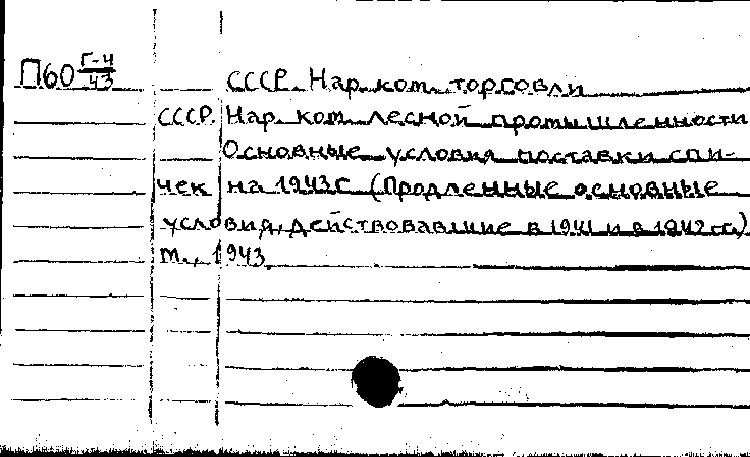 П60 Г-4/43
СССР. Нар. ком. торговли
СССР. Нар. ком. лесной промышленности
Основные условия поставки спи-
чек на 1943 г. (Продленные основные
условия, действовавшие в 1941 и в 1942 гг.)
М., 1943.